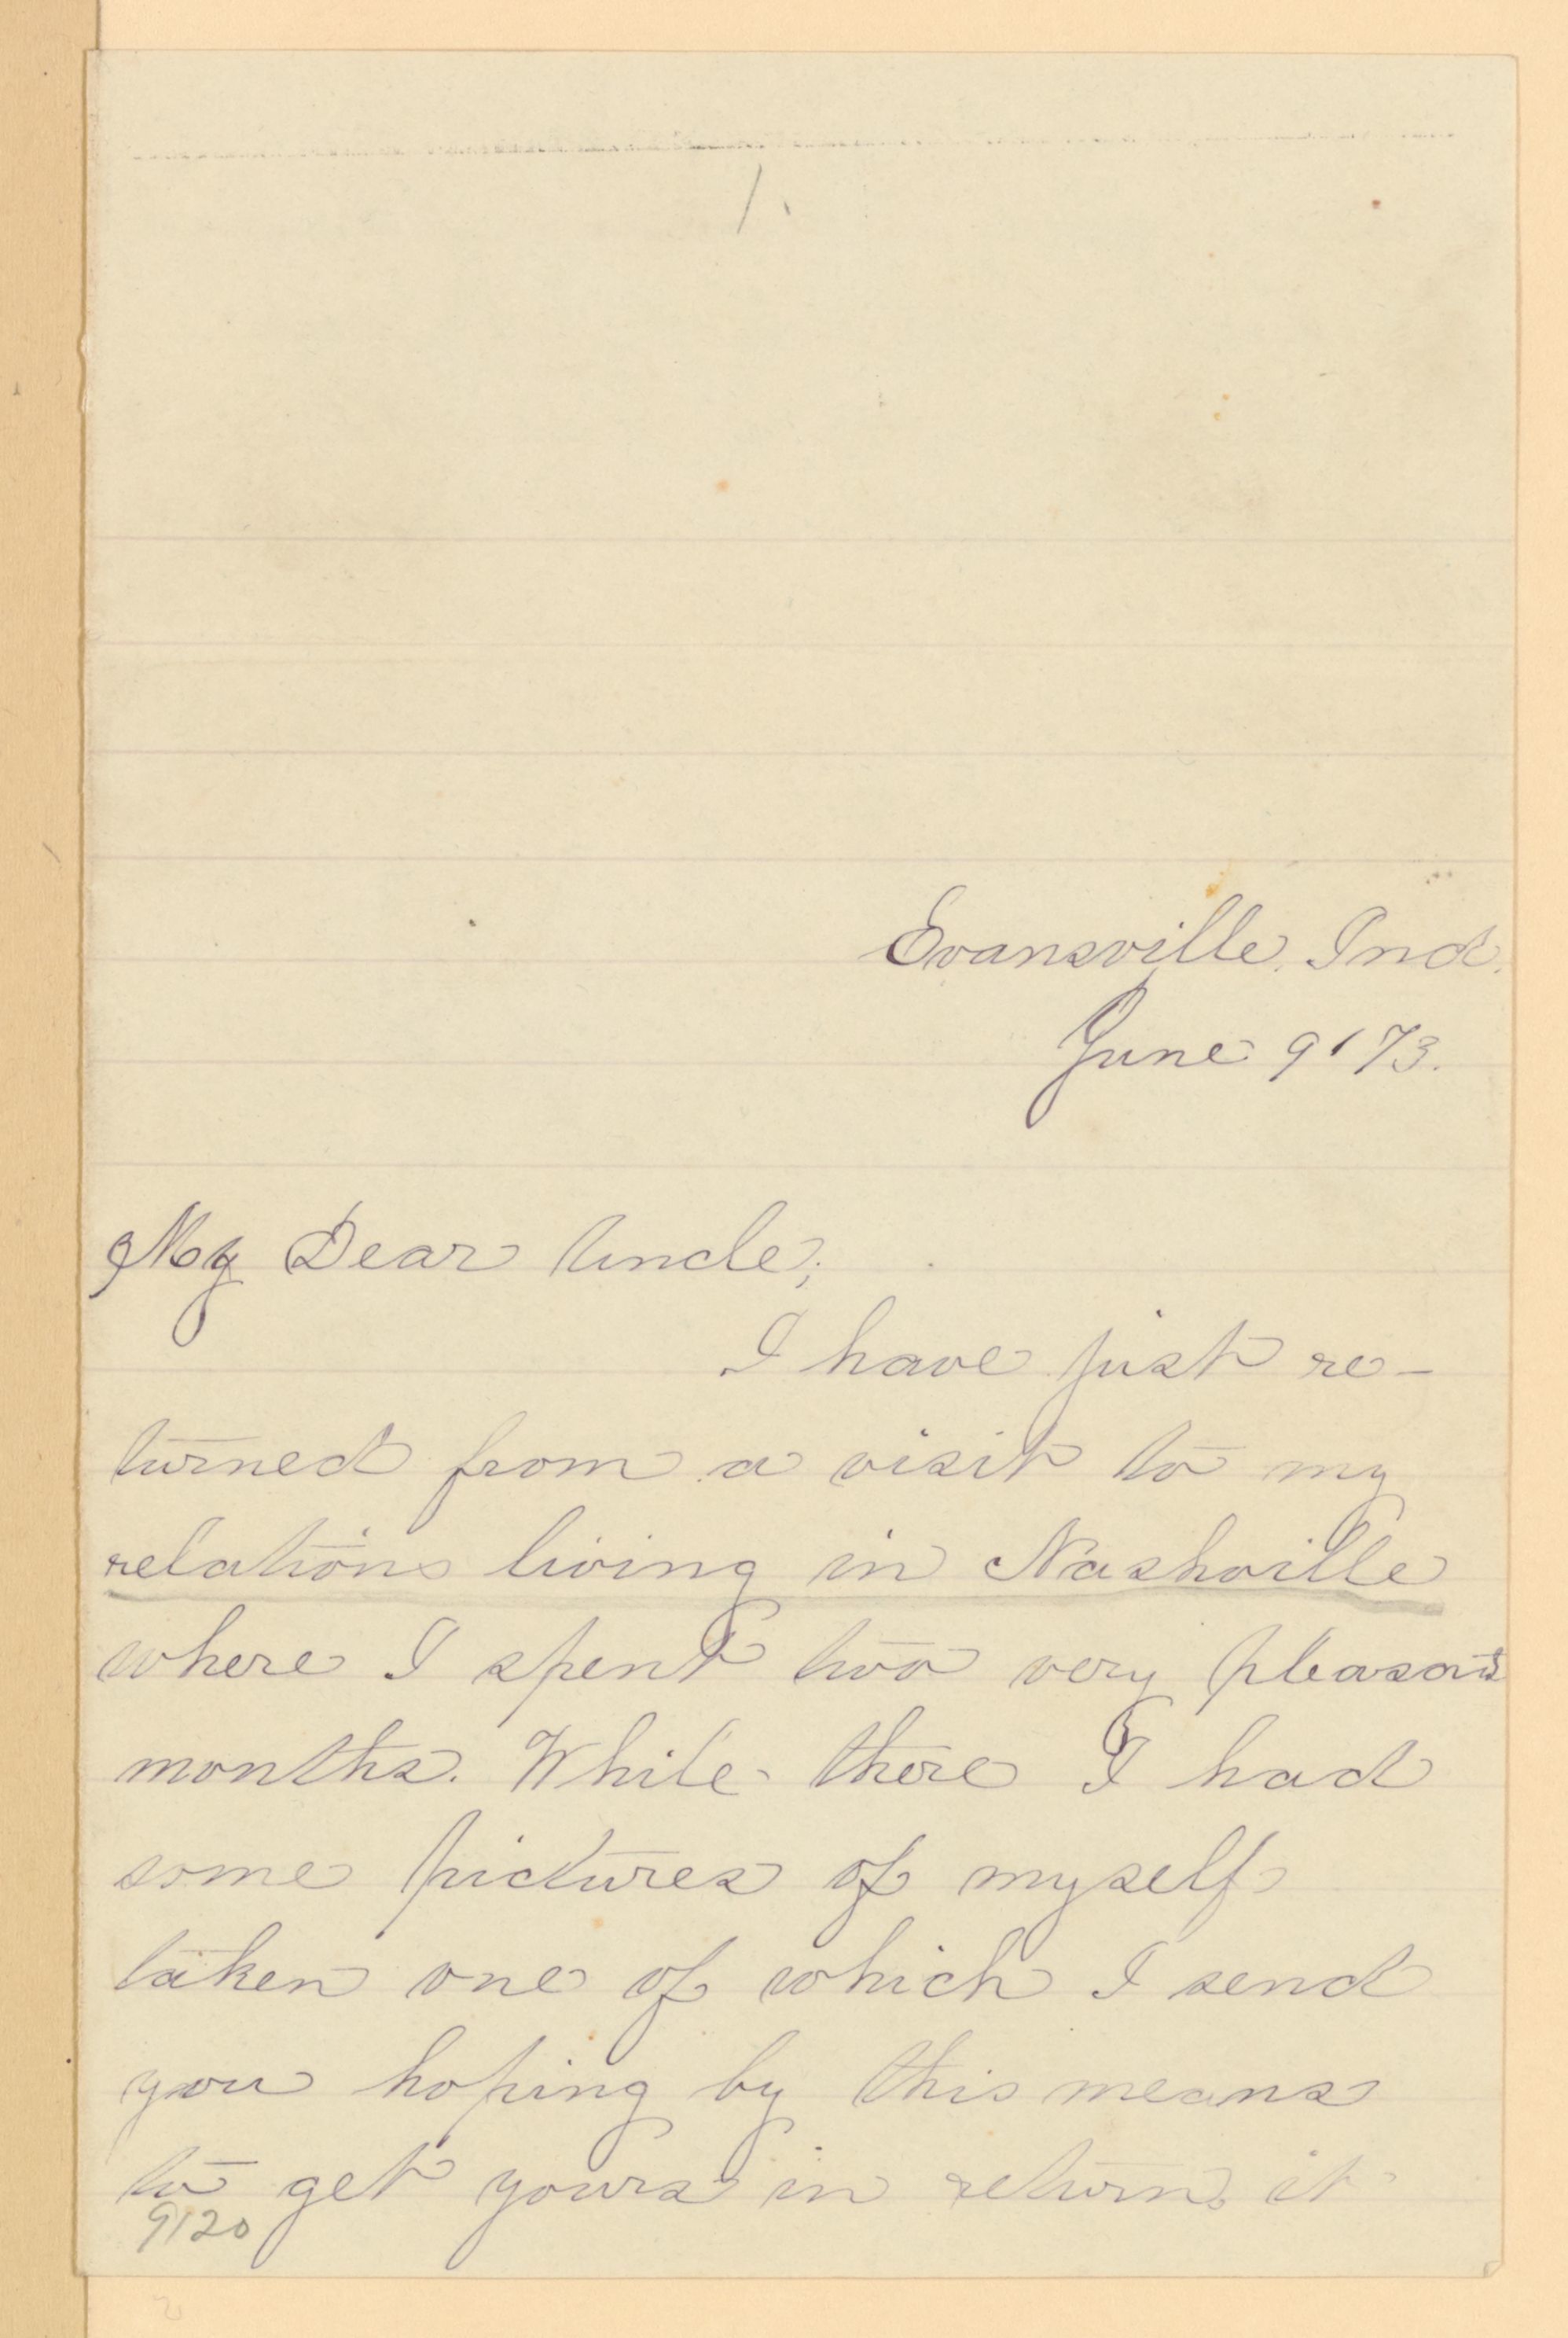 1.
Evansville, Ind.
June 9 '73.
My Dear Uncle;
I have just re-
turned from a visit to my
relations living in Nashville
where I spent two very pleasant
months. While there I had
some pictures of myself
taken one of which I send
you hoping by this means
to get yours in return. it
9120